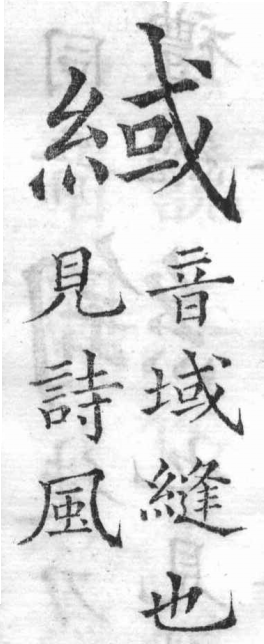 緎
音域縫也
見詩風